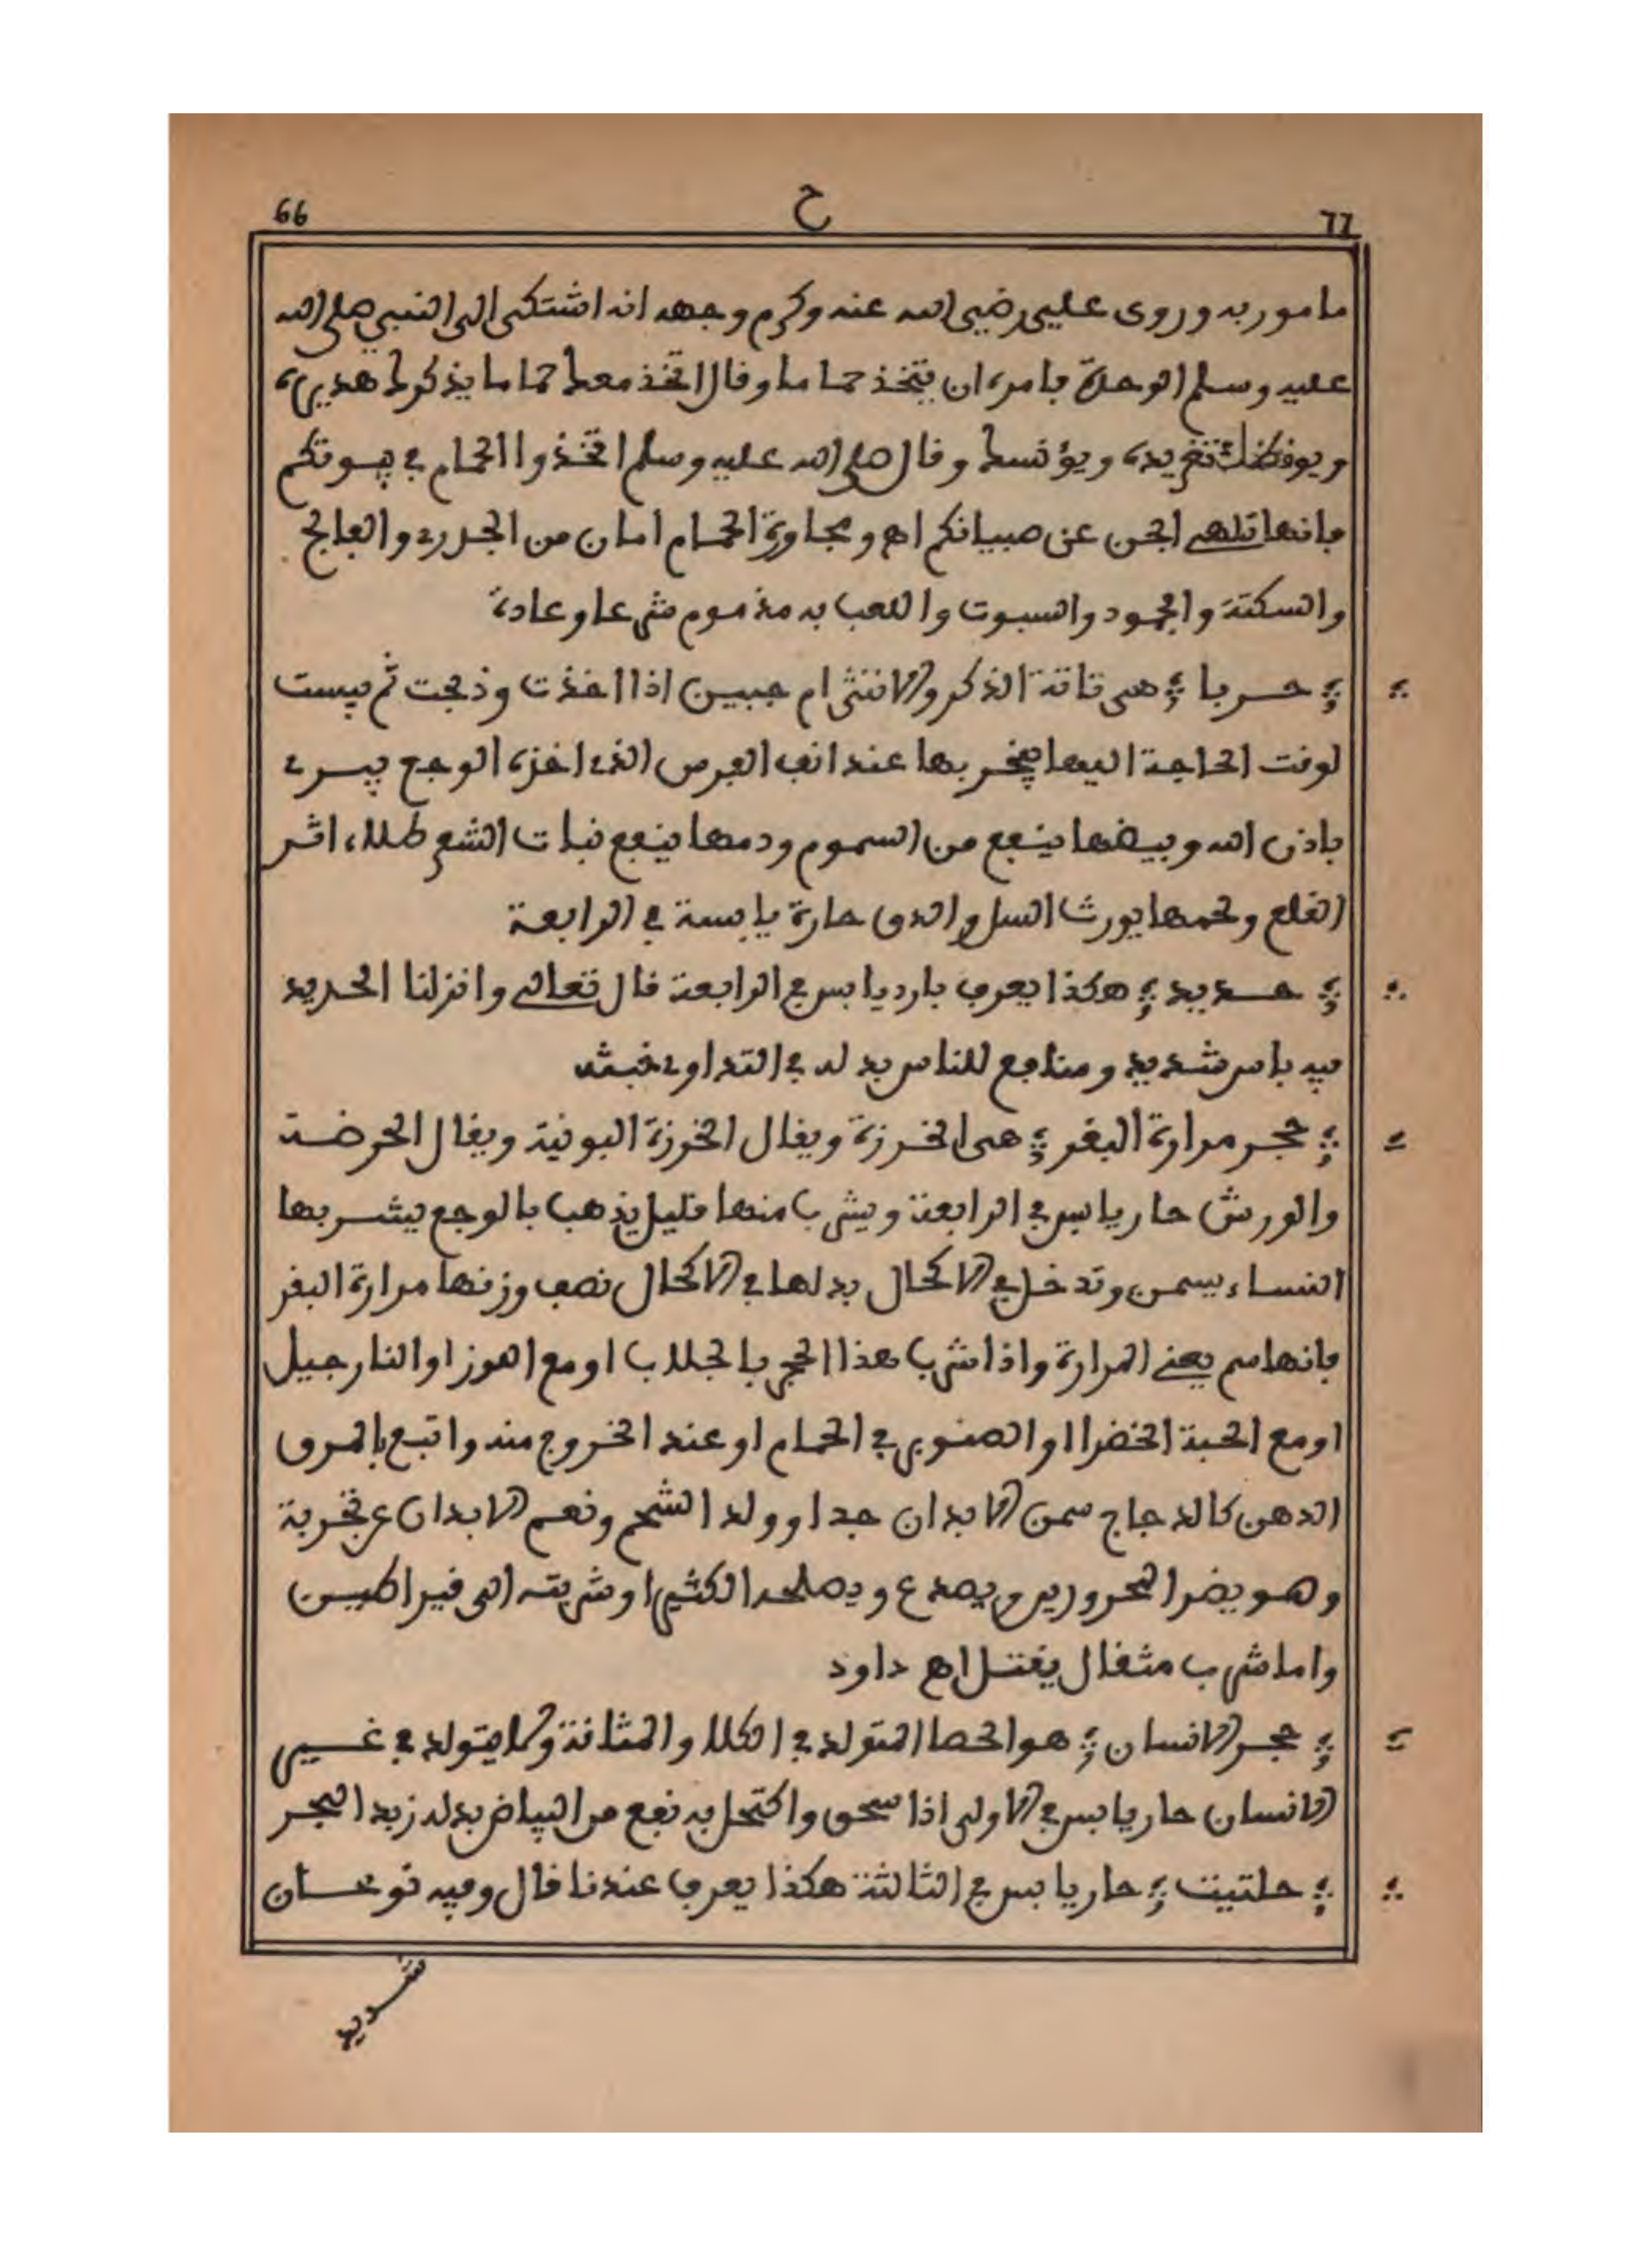 66 ح 77
مامور به وروى علي رضي الله عنه وكرم وجهه انه اشتكى الى النبي صلى الله
عليه وسلم الوحدة فامره ان يتخذ حماما وقال اتخذ معك حماما يذكرك هديره
ويوقظك تغريده ويؤنسك وقال صلى الله عليه وسلم اتخذوا الحمام في بيوتكم
فانها تلهى الجن عن صبيانكم اهـ ومجاورة الحمام امان من الجدرى والفالج
والسكتة والجمود والسبوت واللعب به مذموم شرعا وعادة
حربا هى تاتة الذكر والانثى ام جبين اذا اخذت وذبحت ثم يبست
لوقت الحاجة اليها يبخر بها عند انف الفرص الذى اخزه الوجع يبرى
باذن الله وبيضها ينفع من السموم ودمها ينفع نبات الشعر طلاء اثر
القلع ولحمها يورث السل والدق حارة يابسة في الرابعة
حديد هكذا يعرف بارد يابس في الرابعة قال تعالى وانزلنا الحديد
فيه باس شديد ومنافع للناس بدله في التداوى خبثه
حجر مرارة البقر هى الخرزة ويقال الخرزة البوقية ويقال الحرضة
والورش حار يابس في الرابعة ويشرب منها قليل يذهب بالوجع يشربها
النساء يسمن وتدخل في الاكحال بدلها في الاكحال نصف وزنها مرارة البقر
فانها سم يعنى المرارة واذا شرب هذا الحجر بالجلاب او مع الموز او النارجيل
او مع الحبة الخضرا او الصنوبر في الحمام او عند الخروج منه واتبع بالمرق
الدهن كالدجاج سمن الابدان جدا وولد الشحم ونعم الابدان عن تجربة
وهو يضر المحرورين ويصدع ويصلحه الكثيرا وشربته الى قيراطين
واما شرب مثقال يقتل اهـ داود
حجر الانسان هو الحصا المتولد في الكلا والمثانة ولا يتولد في غير
الانسان حار يابس في الاولى اذا سحق واكتحل به نفع من البياض بدله زبد البحر
حلتيت حار يابس في الثالثة هكذا يعرف عندنا قال وفيه نوعان
شديد